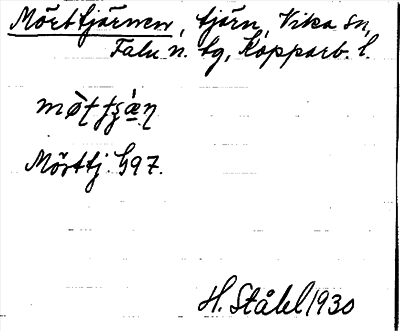 Mörttjärnen, tjärn, Vika sn,
Falu n. tg, Kopparb. l.
Mörttj. h97.
H. Ståhl 1930